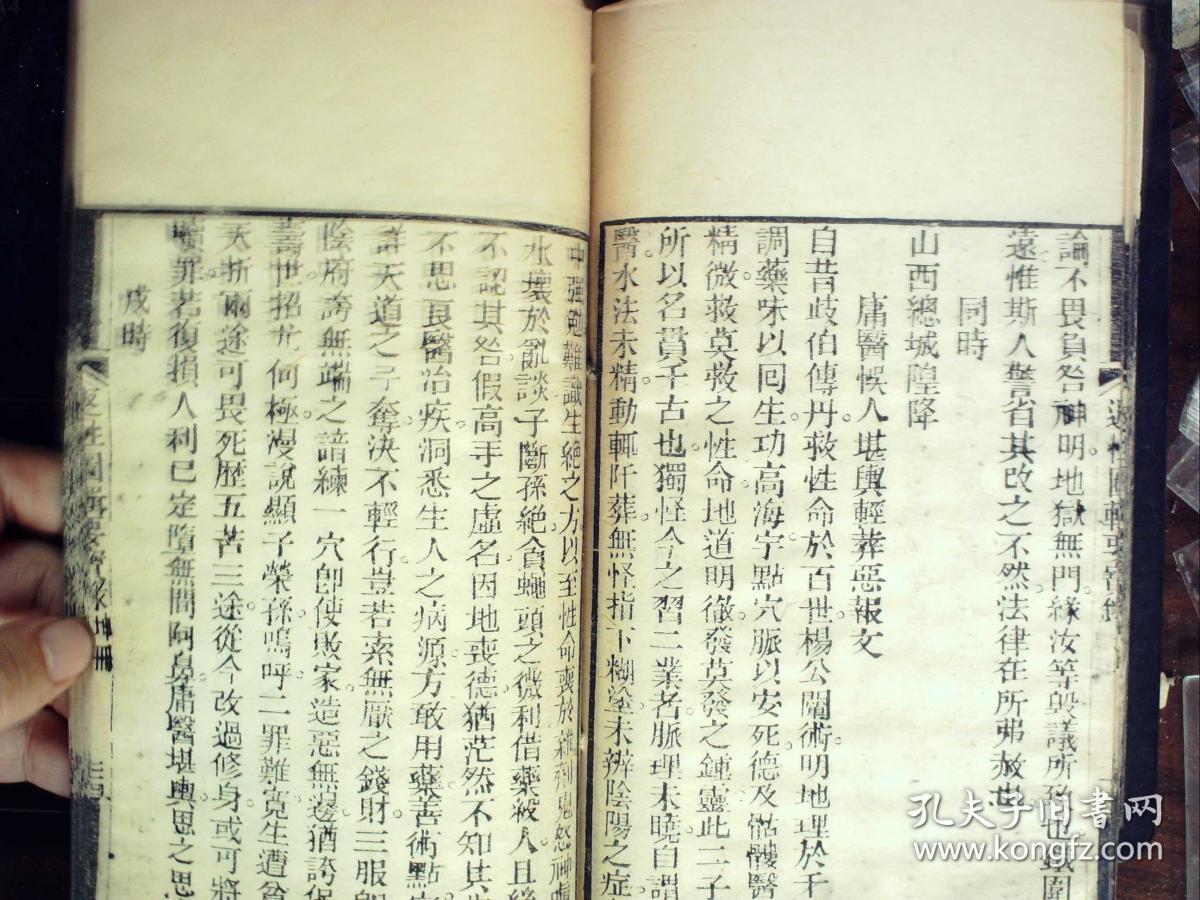 論不畏負咎神明地獄無門緣汝等毀議所致也鐵圍
遠惟斯人警省其改之不然法律在所弗赦也
同時
山西總城隍降
庸醫悞人堪輿輕葬惡報文
自昔歧伯傳丹救性命於百世楊公闡術明地理於千
調藥味以回生功高海宇點穴脈以安死德及骷髏醫
精微救莫救之性命地道明徹發莫發之鍾靈此二子
所以名貫千古也獨怪今之習二業者脈理未曉自謂
醫水法未精動輒阡葬無怪指下糊塗未辨陰陽之症
中強勉難識生絕之方以至性命喪於雜劑鬼怒神
水壞於亂談子斷孫絕貪蠅頭之微利借藥殺人且
不認其咎假高手之虛名因地喪德猶茫然不知其
不思良醫治疾洞悉生人之病源方敢用藥善術點
詳天道之予奪決不輕行豈若索無厭之錢財三服
陰府誇無端之諳練一穴卽使敗家造惡無邊猶誇保
壽世招尤何極漫說顯子榮孫嗚呼二罪難寬生遭
夭折兩途可畏死歷五苦三途從今改過修身或可將
贖罪若復損人利己定墮無間阿鼻庸醫堪輿思之思
戌時
孔夫子旧書网
www.kongfz.com